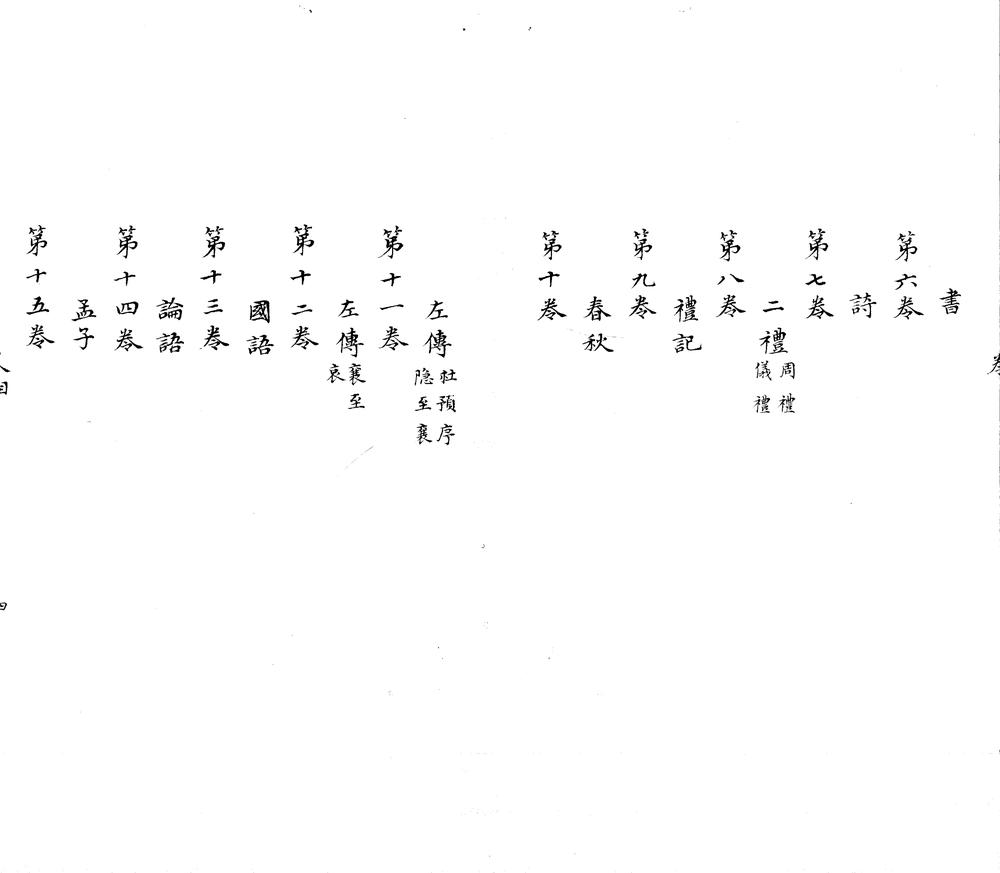 書
第六卷
詩
第七卷
二禮 周禮 儀禮
第八卷
禮記
第九卷
春秋
第十卷
左傳 杜預序 隐至襄
第十一卷
左傳 襄至哀
第十二卷
國語
第十三卷
論語
第十四卷
孟子
第十五卷
四